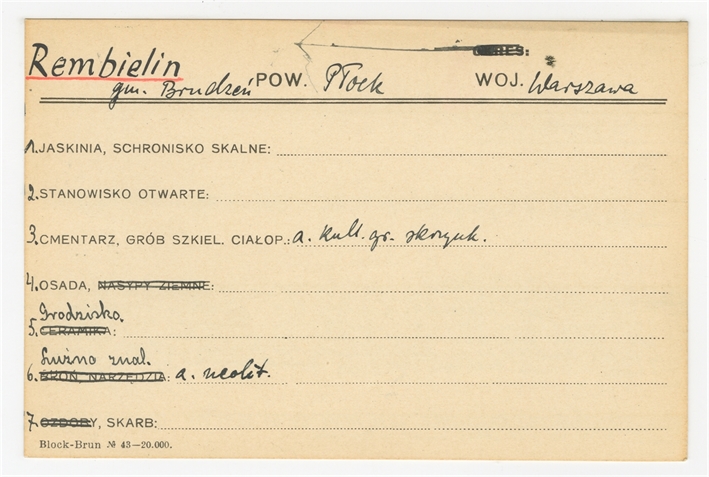 Rembielin
gm. Brudzeń POW. Płock WOJ. Warszawa
1. JASKINIA, SCHRONISKO SKALNE:
2. STANOWISKO OTWARTE:
3. CMENTARZ, GRÓB SZKIEL. CIAŁOP.: a. kult. gr. skrzynk.
4. OSADA, NASYPY ZIEMNE:
Grodzisko.
5. CERAMIKA:
Luźno znal.
6. BROŃ, NARZĘDZIA: a. neolit.
7. OZDOBY, SKARB:
Block-Brun № 43—20.000.